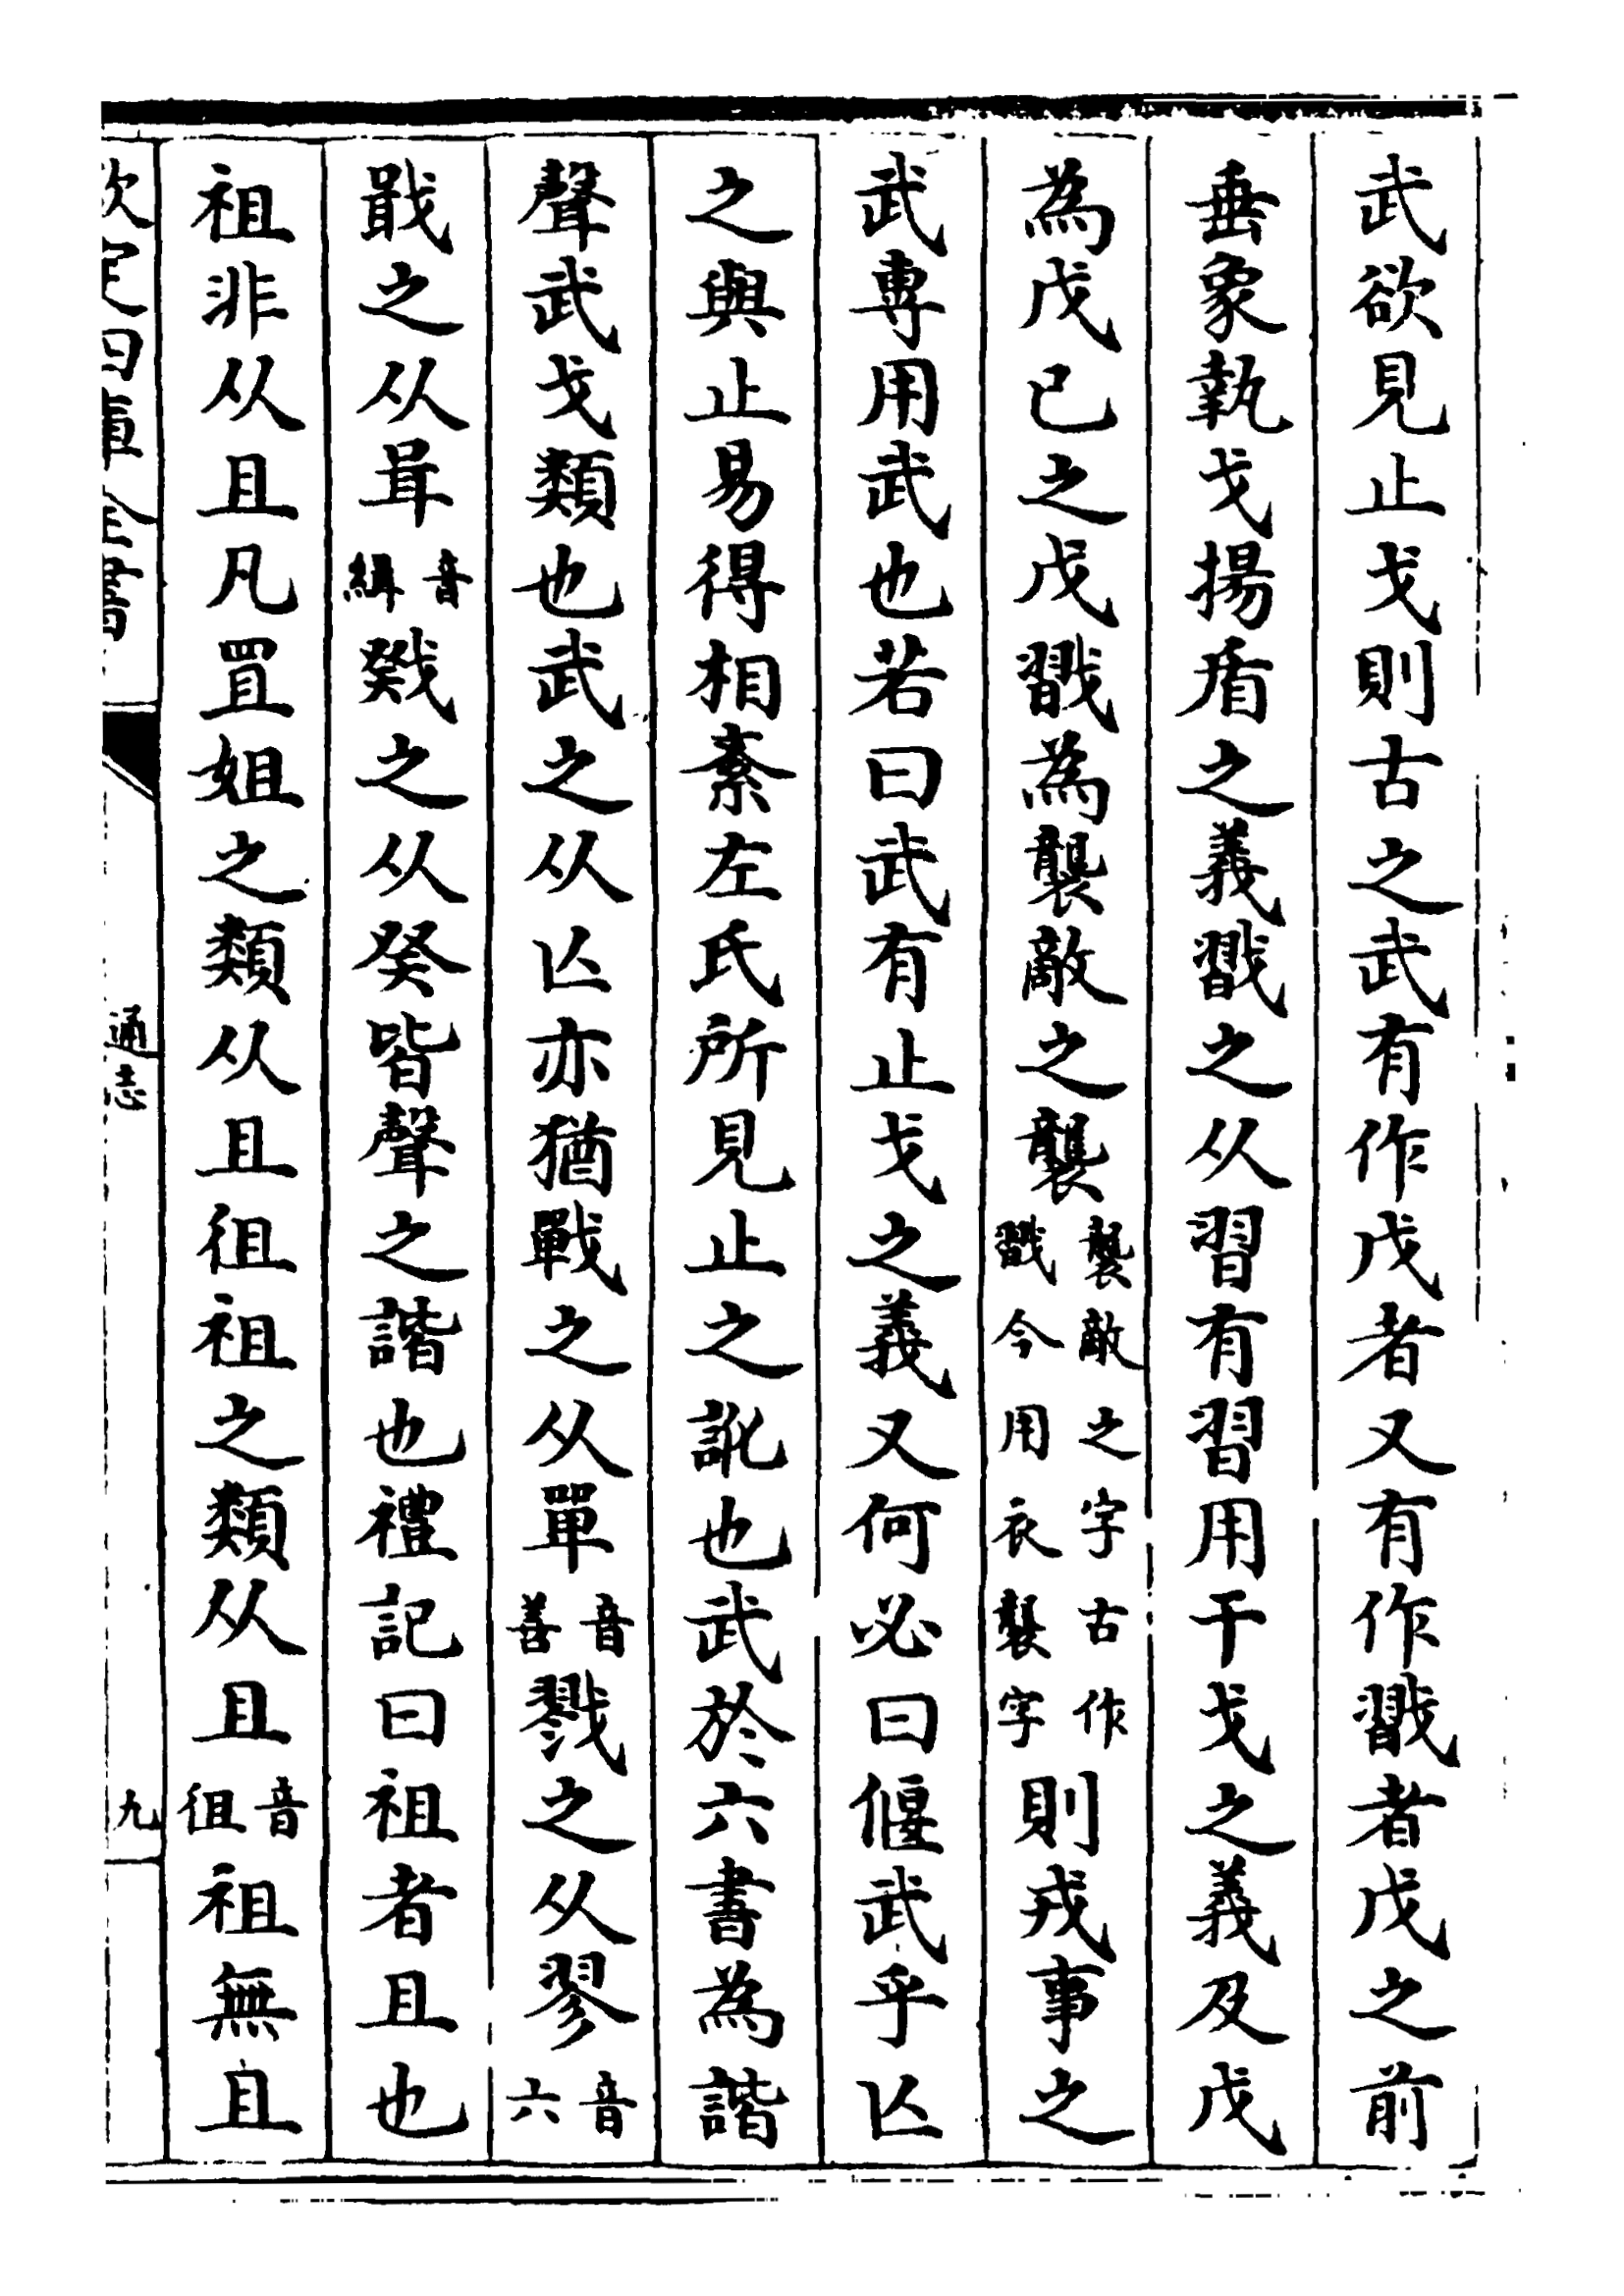 武欲見止戈則古之武有作戊者又有作戳者戊之前
垂象執戈揚盾之義戳之从習有習用干戈之義及戊
為戊已之戊戳為襲敵之襲襲敵之字古作戳今用衣襲字則戎事之
武專用武也若曰武有止戈之義又何必曰偃武乎亾
之與止易得相紊左氏所見止之訛也武於六書為諧
聲武戈類也武之从亾亦猶戰之从單音善戮之从翏音六
戢之从咠音緝戣之从癸皆聲之諧也禮記曰祖者且也
祖非从且凡罝姐之類从且徂祖之類从且音徂祖無且
欽定四庫全書
通志
九